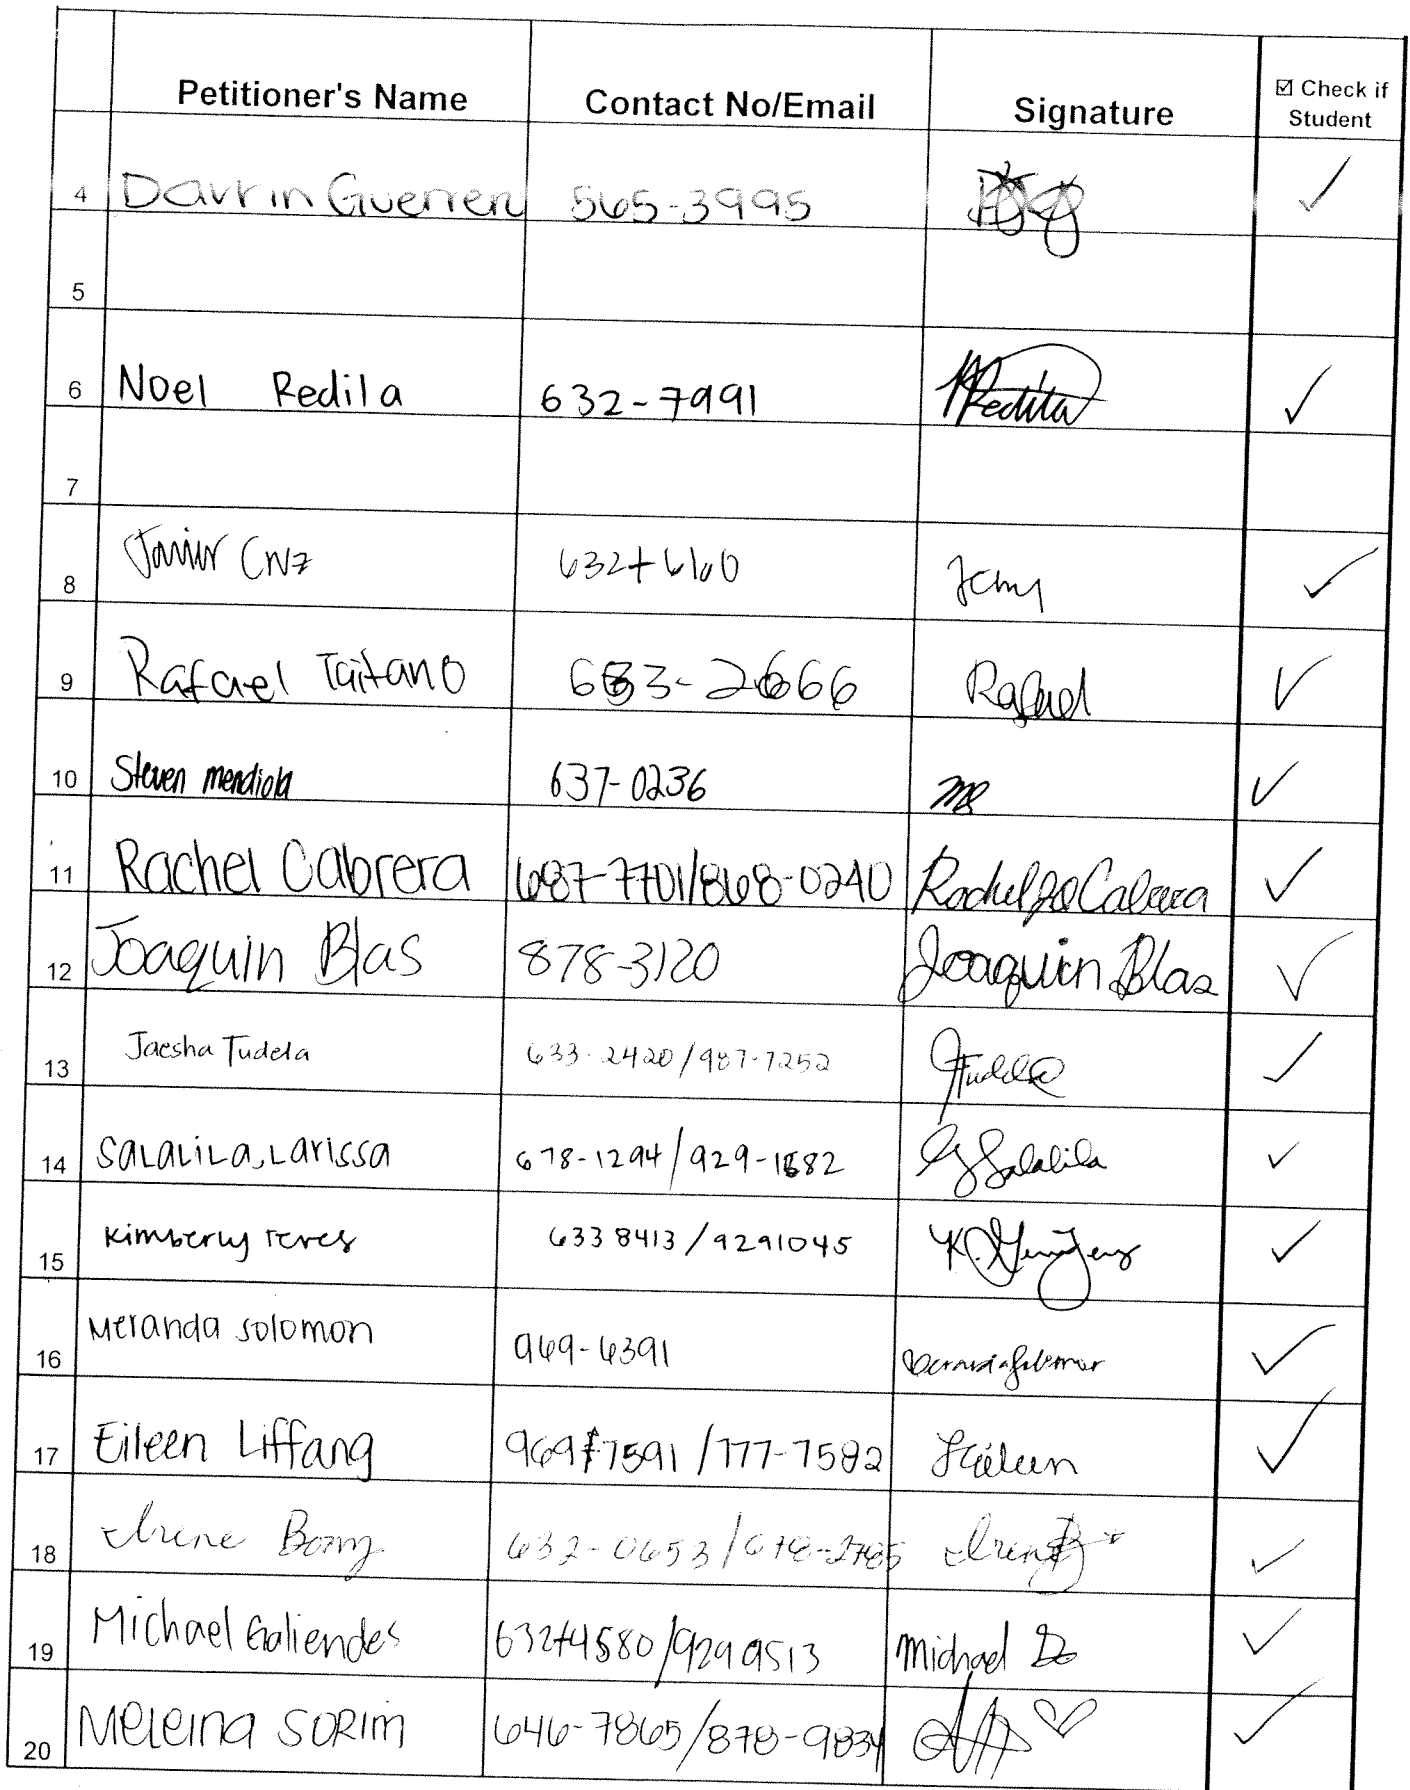 Petitioner's Name Contact No/Email Signature ☑ Check if
Student
4 Darrin Guerrero 565-3995 ✓
5
6 Noel Redila 632-7991 NRedila ✓
7
8 Javier Cruz ✓
9 Rafael Taitano 633-2666 Rafael ✓
10 Steven mendiola 637-0236 ✓
11 Rachel Cabrera 687-7701/868-0240 Rachel Cabrera ✓
12 Joaquin Blas 878-3120 Joaquin Blas ✓
13 Jaesha Tudela 633-2420/987-7252 JTudela ✓
14 SaLaLiLa, Larissa 678-1294/929-1682 Salalila ✓
15 Kimberly reyes 6338413/9291045 ✓
16 Meranda Solomon 969-6391 ✓
17 Eileen Liffang 969-7591/777-7582 Eileen ✓
18 Irene 632-0653/678-2785 Irene ✓
19 Michael Galiendes 632-4580/929 9513 Michael ✓
20 Meleina SORim 646-7865/878-9834 ♡ ✓